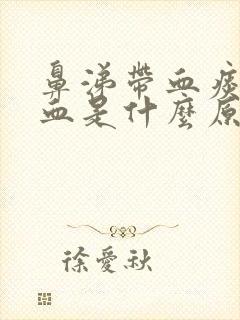 鼻涕帶血痰
血是什麼原
徐愛秋